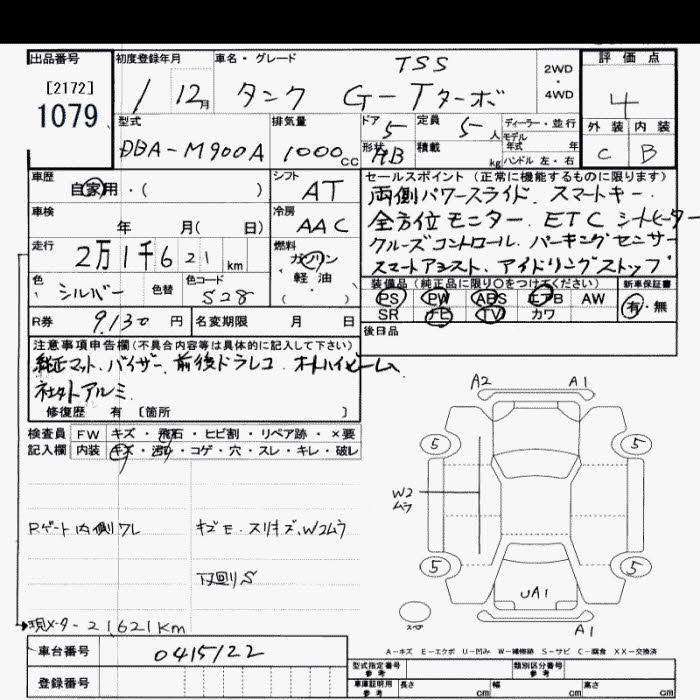 出品番号
[2172]
1079
初度登録年月
1 12月
車名・グレード
TSS
タンク G-Tターボ
2WD
・
4WD
評価点
4
外装 内装
C B
型式
DBA-M900A
排気量
1000cc
ドア 5
定員 5人
形状 HB
積載 kg
ディーラー・並行
モデル
年式 年
ハンドル 左・右
車歴
自家用・( )
シフト
AT
車検
年 月( 日)
冷房
AAC
走行
2万1千621km
燃料
ガソリン
軽・油
( )
色
シルバー
色替
色コード
S28
R券 9,130 円
名変期限 月 日
セールスポイント(正常に機能するものに限ります)
両側パワースライド、スマートキー、
全方位モニター、ETC シートヒーター
クルーズコントロール、パーキングセンサー
スマートアシスト、アイドリングストップ
装備品(純正品に限り○をつけてください)
PS PW ABS エアB AW
SR ナビ TV カワ
新車保証書
有・無
後日品
注意事項申告欄(不具合内容等は具体的に記入して下さい)
純正マット、バイザー、前後ドラレコ、オートハイビーム、
社外アルミ
修復歴 有 [箇所 ]
検査員
記入欄
FW キズ・飛石・ヒビ割・リペア跡・×要
内装 キズ・汚れ・コゲ・穴・スレ・キレ・破レ
Rゲート内側ワレ
キズE、スリキズ、W2ムラ
下回りS
現メーター21,621Km
A2 A1
5 5
W2
ムラ
5 5
UA1
スペア
A1
A-キズ E-エクボ U-凹み W-補修跡 S-サビ C-腐食 XX-交換済
車台番号 0415122
登録番号
型式指定番号
参考
類別区分番号
参考
車庫証明用
参考
長さ cm
幅 cm
高さ cm